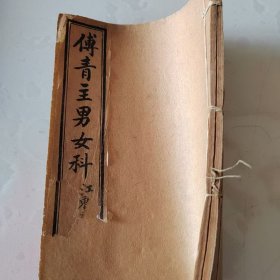 傅青主男女科
江東